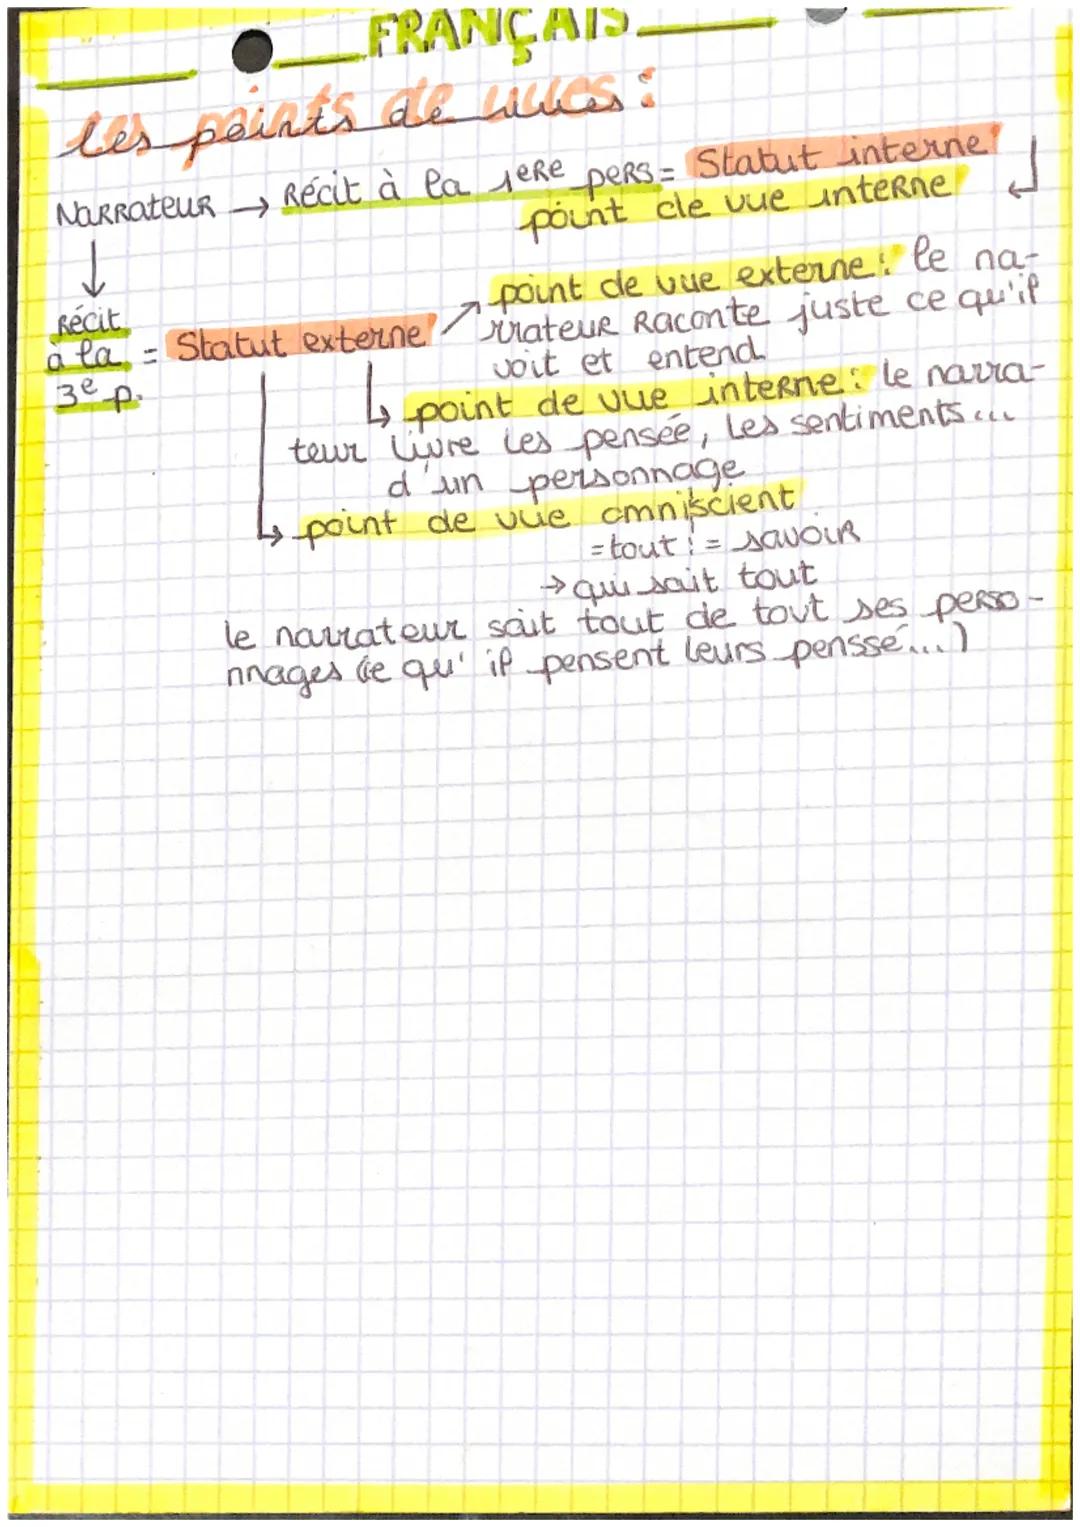 FRANÇAIS
les points de vues :
NARRateuR → Récit à la 1ERE PERS = Statut interne
point de vue interne
↓
Récit
à la = Statut externe
3e p.
point de vue externe : le na-
rrateur Raconte juste ce qu'il
voit et entend
point de vue interne : le narra-
teur livre les pensée, les sentiments...
d'un personnage
point de vue omniscient
= tout = savoir
→ qui sait tout
le narrateur sait tout de tout ses perso-
nnages (ce qu'il pensent leurs penssé...)